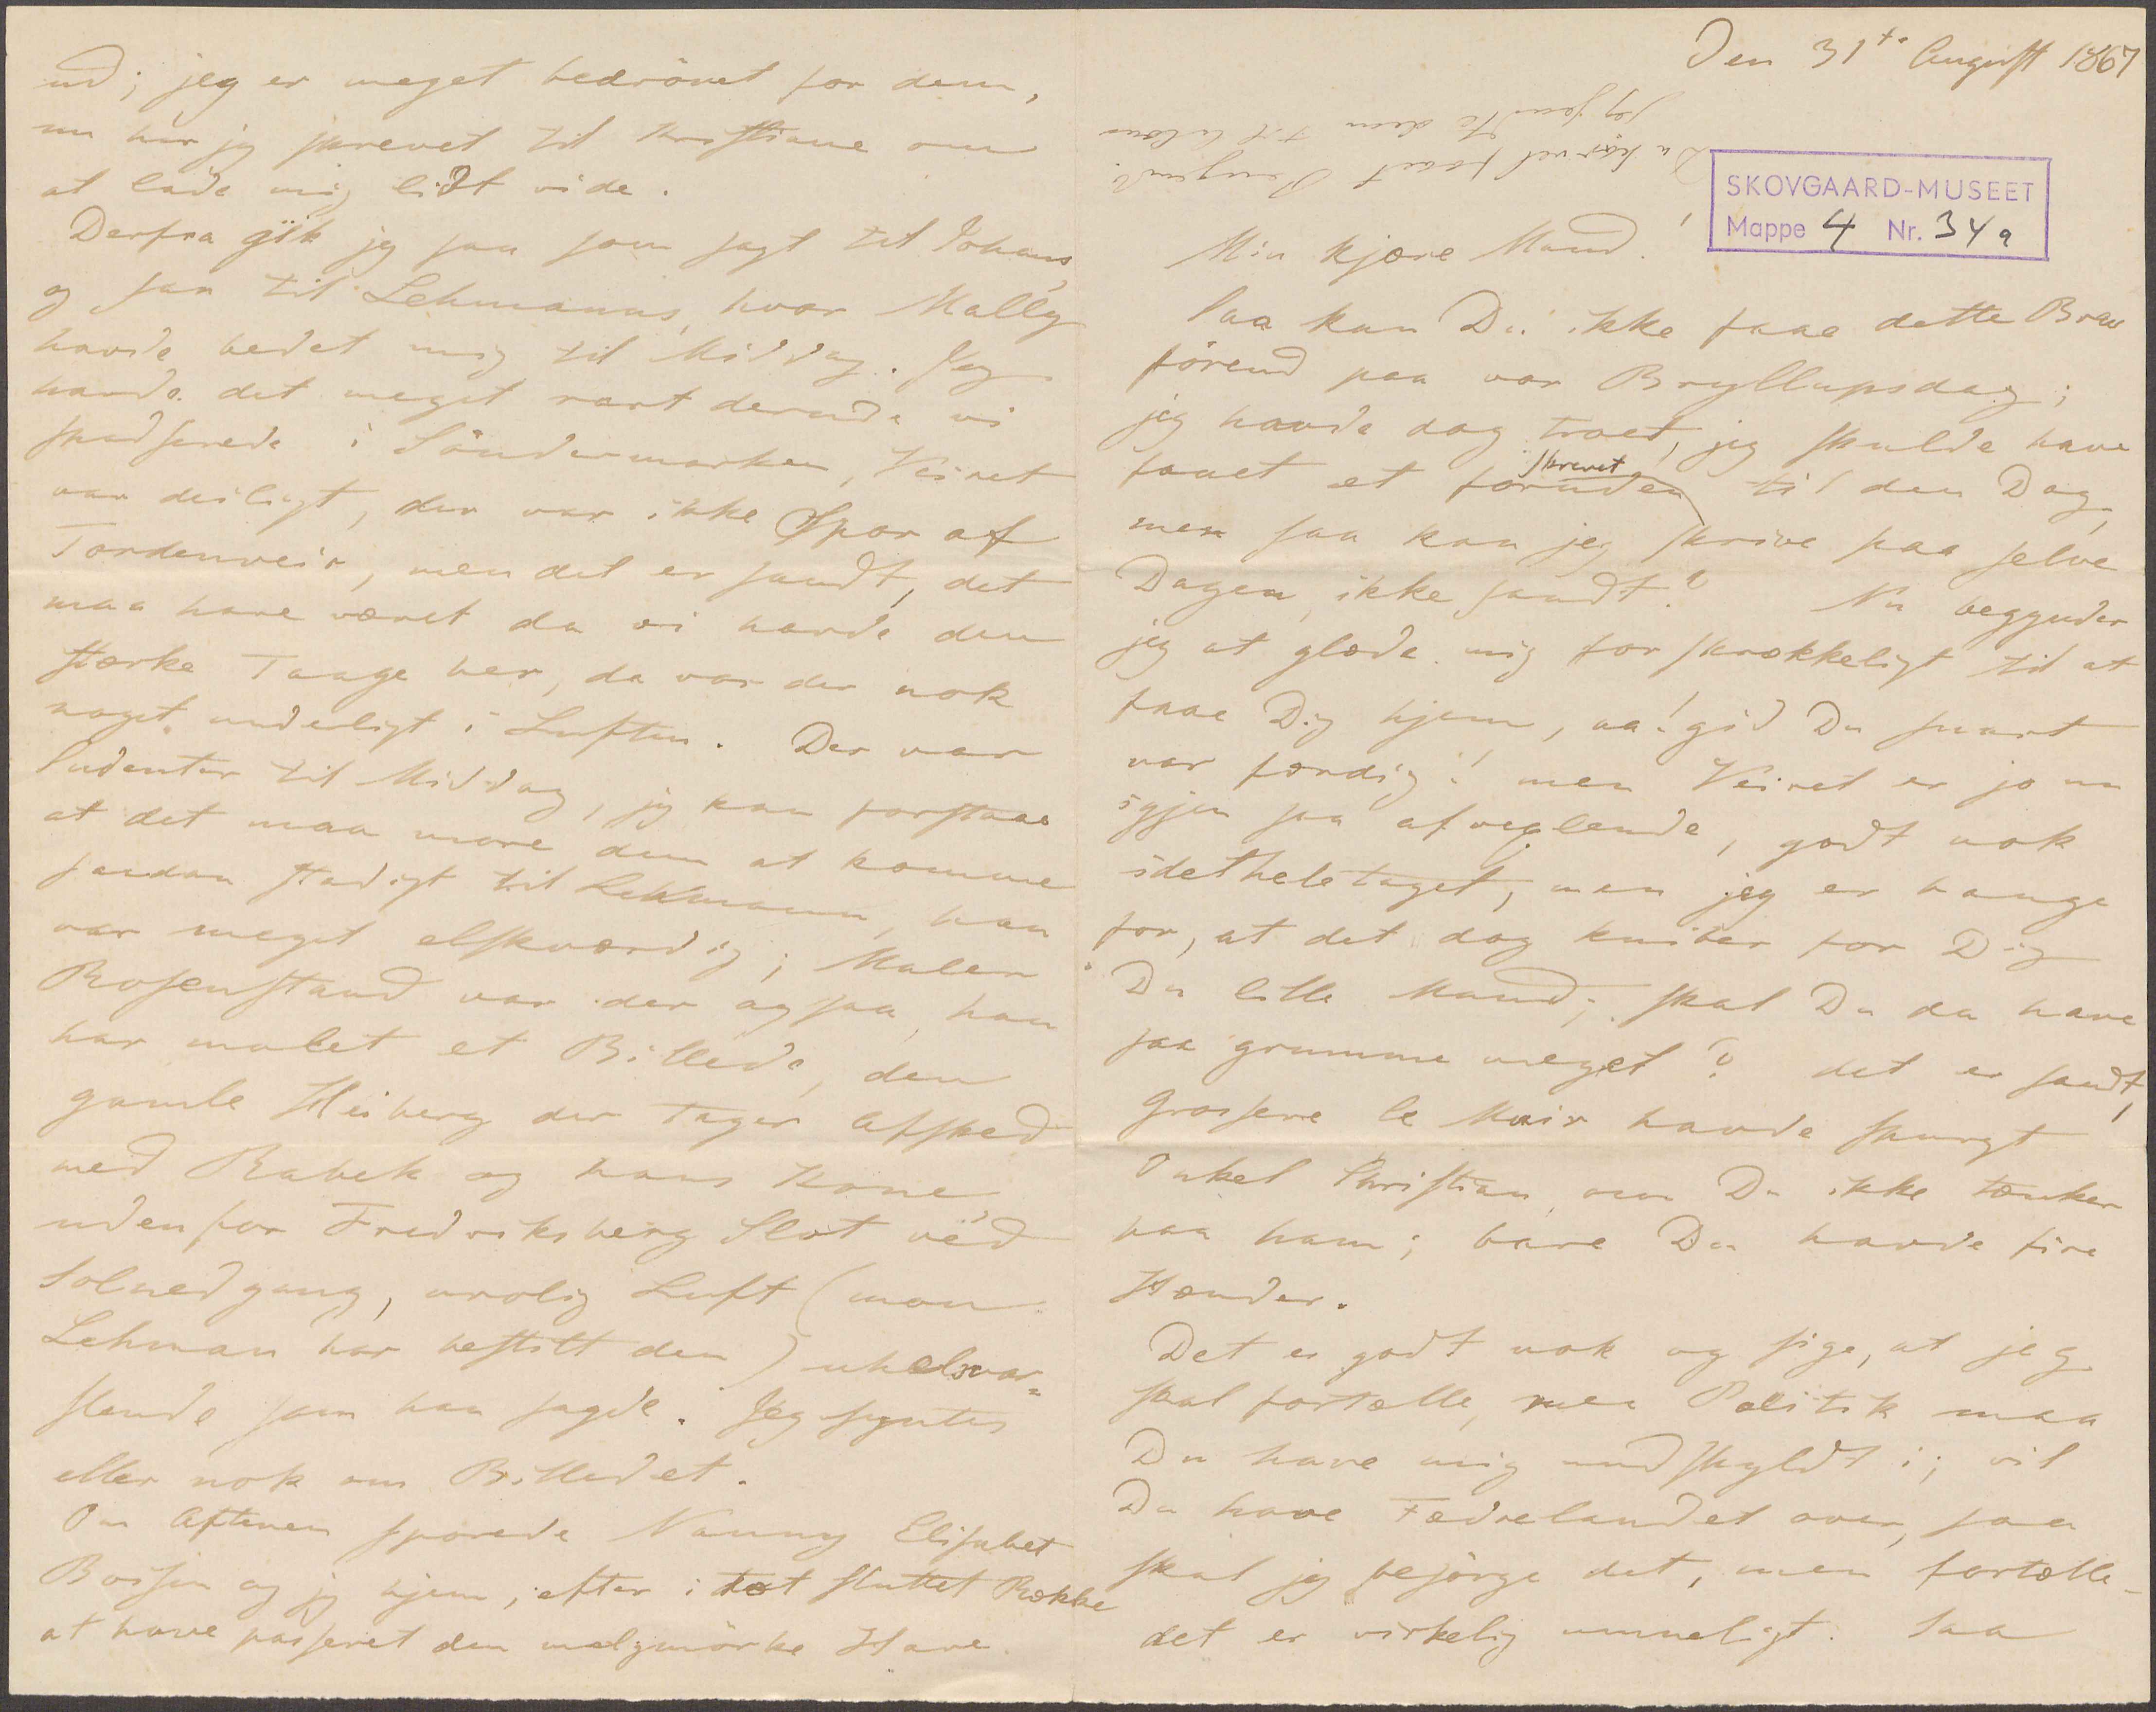 Den 31te August 1867
Du har vel faaet Pengene?
jeg sendte dem til
SKOVGAARD-MUSEET
Mappe 4 Nr. 34a
Min kjære Mand!
Saa kan Du ikke faae dette Brev
förend paa vor Bryllupsdag;
jeg havde dog troet, jeg skulde have
faaet et skrevet foruden til den Dag,
men saa kan jeg skrive paa selve
Dagen, ikke sandt? Nu begynder
jeg at glæde mig forskrækkeligt til at
faae Dig hjem, aa! gid Du snart
var færdig! men Veiret er jo nu
igjen saa afvexlende, godt nok
idetheletaget, men jeg er bange
for, at det dog kniber for Dig
Du lille Mand; skal Du da have
saa grumme meget? det er sandt,
Grosserer le Mair havde spurgt
Onkel Christian, om Du ikke tænker
paa ham; bare Du havde fire
Hænder.
Det er godt nok og sige, at jeg
skal fortælle, men Politik maa
Du have mig undskyldt i; vil
Du have Fædrelandet over, saa
skal jeg besörge det, men fortælle-
det er virkelig umueligt. Saa
ud; jeg er meget bedrövet for dem,
nu har jeg skrevet til Kristiane om
at lade mig lidt vide.
Derfra gik jeg saa som sagt til Johans,
og saa til Lehmanns, hvor Mally
havde bedet mig til Middag. Jeg
havde det meget rart derude vi
spadserede i Söndermarken, Veiret
var deiligt, der var ikke Spor af
Tordenveir, men det er sandt, det
maa have været da vi havde den
stærke Taage her, da var der nok
noget underligt i Luften. Der var
Studenter til Middag, jeg kan forstaae
at det maa more dem at komme
saadan stadigt til Lehmann, han
var meget elskværdig; Maler
Rosenstand var der ogsaa, han
har malet et Billede, den
gamle Heiberg der tager Afsked
med Rabek og hans Kone,
udenfor Fredriksberg Slot ved
Solnedgang, urolig Luft (mon
Lehman har bestilt den) uhelsvar=
slende som han sagde. Jeg syntes
eller nok om Billedet.
Om Aftenen sporede Nanny Elisabet
Boisen og jeg hjem, efter i tæt sluttet Række
at have passeret den mulgmörke Have.